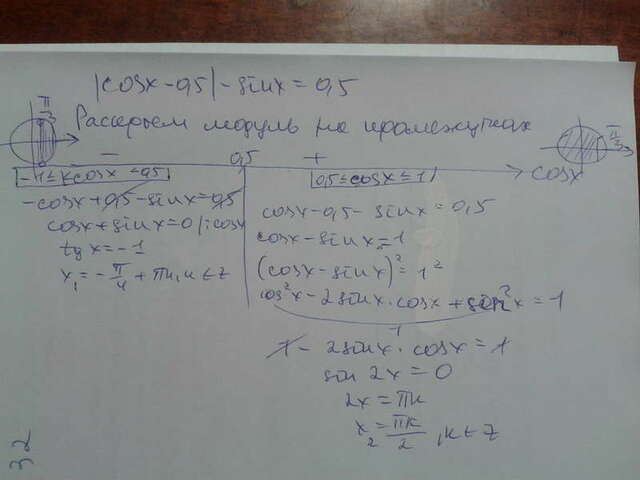 |cosx-0,5|-sinx=0,5
Раскроем модуль на промежутках
π/3
π/3
- 0,5 + cosx
-1≤cosx≤0,5
0,5≤cosx≤1
-cosx+0,5-sinx=0,5
cosx+sinx=0 |:cosx
tg x=-1
x₁=-π/4+πn, n∈Z
cosx-0,5-sinx=0,5
cosx-sinx=1
(cosx-sinx)²=1²
cos²x-2sinx·cosx+sin²x=1
1
1-2sinx·cosx=1
sin 2x=0
2x=πk
x₂=πk/2, k∈Z
32